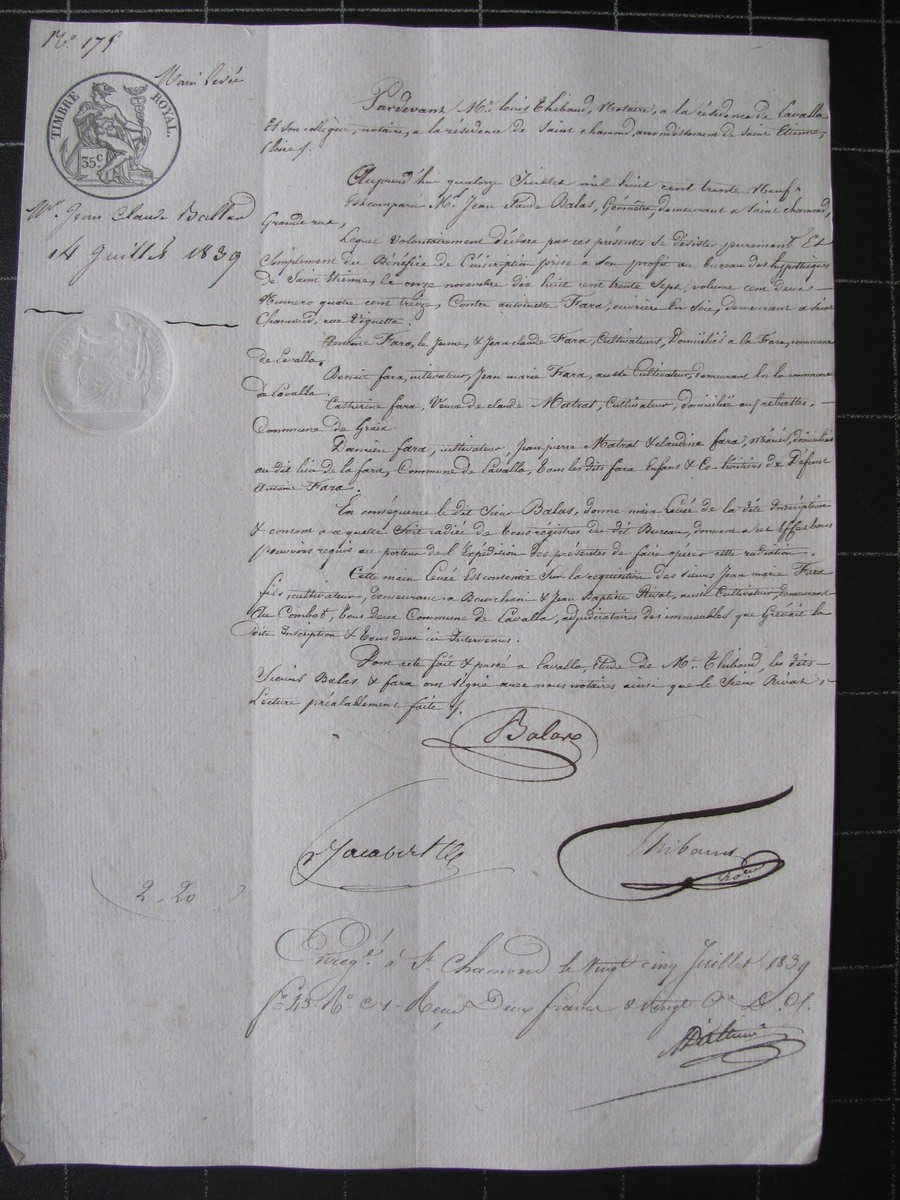 N.o 175
Main levée
TIMBRE ROYAL.
35c
Mr. Jean Claude Ballas
14 Juillet 1839
Pardevant Me. Louis Thibaud, Notaire, a la résidence de Lavalla
Et son collègue, notaire, a la résidence de Saint chamond, arrondissement de Saint Etienne,
(Loire).
Aujourd'hui quatorze Juillet mil huit cent trente Neuf,
Est comparu Mr. Jean Claude Balas, Géomètre, demeurant a Saint chamond,
Grande rue,
Lequel volontairement déclare par ces présentes se désister purement Et
Simplement du Bénéfice de L'inscription prise a son profit au bureau des hypothèques
De Saint Etienne, le onze novembre dix huit cent trente Sept, volume cent deux
Numero quatre cent treize, Contre antoinette Fara, ouvrière En Soie, demeurant a Saint
Chamond, rue Vignette.
Antoine Fara, le Jeune, & Jean claude Fara, Cultivateurs, Domiciliés a la Fara, commune
de Lavalla,
Benoit fara, cultivateur, Jean marie Fara, aussi Cultivateur, demeurant En la commune
de Lavalla
Catherine fara, Veuve de claude Matrat, Cultivateur, domiciliée aux retrattes,
Commune de Graix.
Damien fara, cultivateur, Jean pierre Matrat & claudine fara, mariés, domiciliés
au dit lieu de la fara, Commune de Lavalla, Tous les dits fara Enfans & Co-héritiers de Défunt
Antoine Fara.
En conséquence le dit Sieur Balas, donne main Levée de la dite Inscription
& consent a ce quelle Soit radiée de tous registres du dit Bureau, donnant a cet Effet tous
pouvoirs requis au porteur de l'Expédition des présentes de faire opérer cette radiation.
Cette main Levée Est consentie Sur la requisition des sieurs Jean marie Fara
fils, cultivateur, demeurant a Bourchani & Jean Baptiste Rivat, aussi Cultivateur, demeurant
Au Combat, Tous deux Commune de Lavalla, adjudicataires des immeubles que Grévait la
dite Inscription & Tous deux ici Intervenus.
Dont acte fait & passé a Lavalla, Etude de Me. Thibaud, les dits
Sieurs Balas & fara ont signé avec nous notaires ainsi que le Sieur Rivat,
Lecture préalablement faite.
Balas
Thibaud
2.20
Enregé. à St Chamond le Vingt cinq Juillet 1839
Deux francs & Vingt